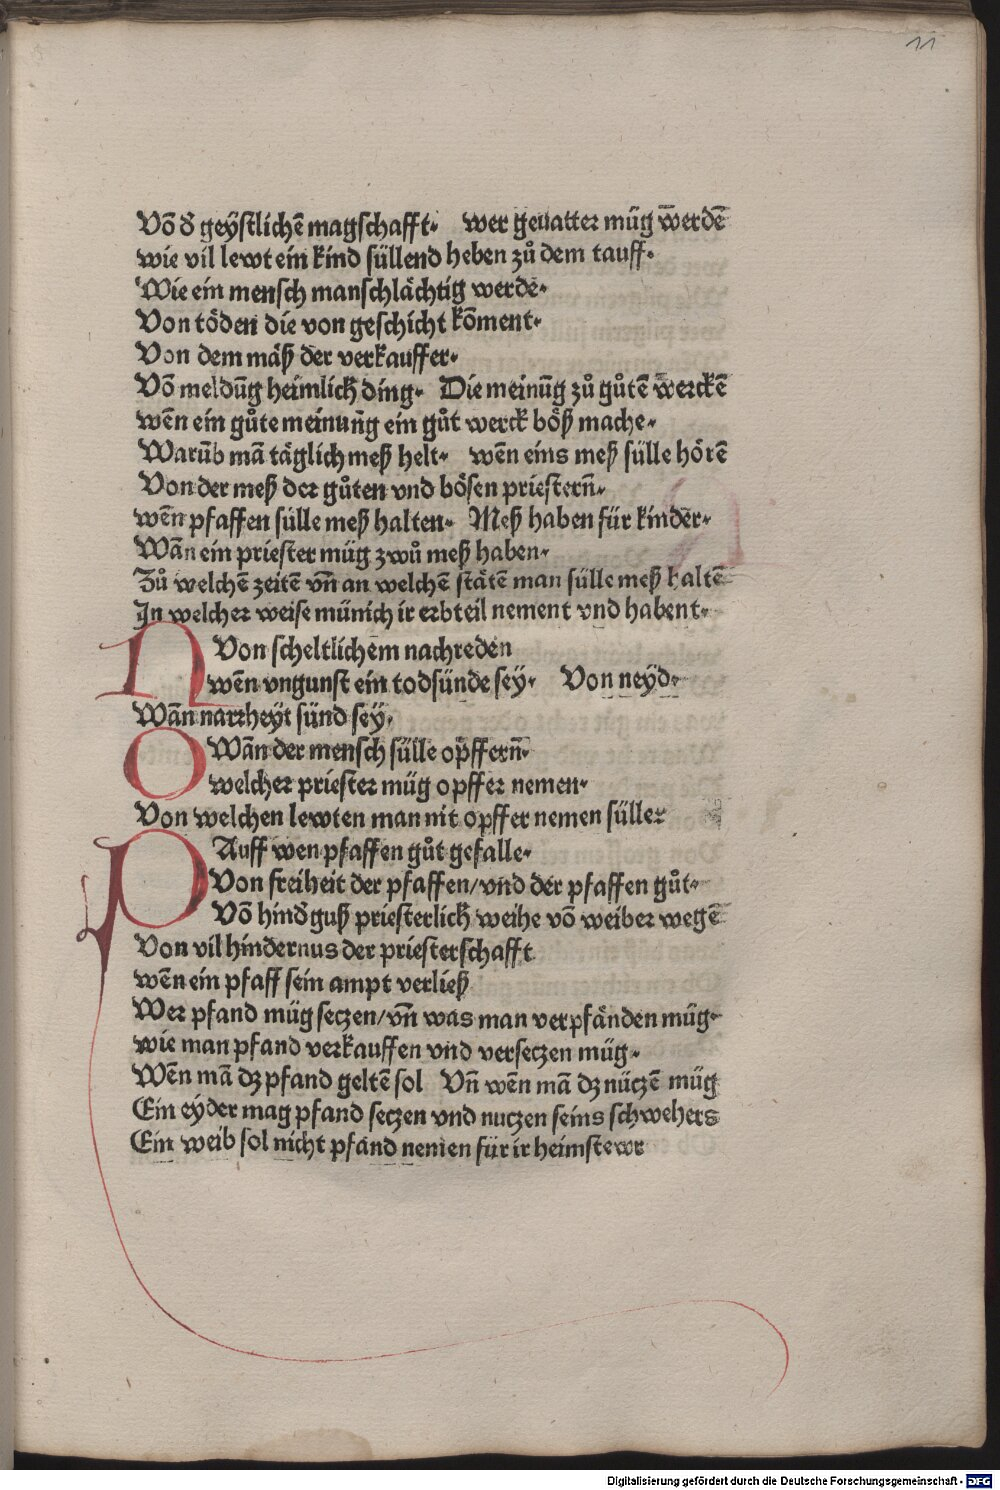 11
Võ δ geÿstlichẽ magſchafft· wer geuatter müg werdẽ
wie vil lewt ein kind ſüllend heben zů dem tauff·
Wie ein menſch manſchlächtig werde·
Von töden die von geſchicht kõment·
Von dem mäß der verkauffer·
Võ meldũg heimlich ding· Die meinũg zů gůtẽ werckẽ
wẽn ein gůte meinuñg ein gůt werck böß mache·
Warũb mã täglich meß helt· wẽn eins meß ſülle hörẽ
Von der meß der gůten vnd böſen prieſterñ·
wẽn pfaffen ſülle meß halten· Meß haben für kinder·
Wãn ein prieſter müg zwů meß haben·
Zů welchẽ zeitẽ vñ an welchẽ ſtätẽ man ſülle meß haltẽ
In welcher weiſe münich ir erbteil nement vnd habent·
N Von ſcheltlichem nachreden
wẽn vngunſt ein todſünde ſey· Von neyd·
Wãn narrheyt ſünd ſey·
O Wãn der menſch ſülle opffern̄·
welcher prieſter müg opffer nemen·
Von welchen lewten man nit opffer nemen ſüller
P Auff wen pfaffen gůt gefalle·
Von freiheit der pfaffen/vnd der pfaffen gůt·
Võ hindδguß prieſterlich weihe võ weiber wegẽ
Von vil hindernus der prieſterſchafft
wẽn ein pfaff ſein ampt verließ
Wer pfand müg ſeczen/vñ was man verpfänden müg·
wie man pfand verkauffen vnd verſeczen müg·
Wẽn mã dz pfand geltẽ ſol Vñ wẽn mã dz nüczẽ müg
Ein eyder mag pfand ſeczen vnd nuczen ſeins ſchwehers
Ein weib ſol nicht pfand nemen für ir heimſtewr
Digitalisierung gefördert durch die Deutsche Forschungsgemeinschaft - DFG